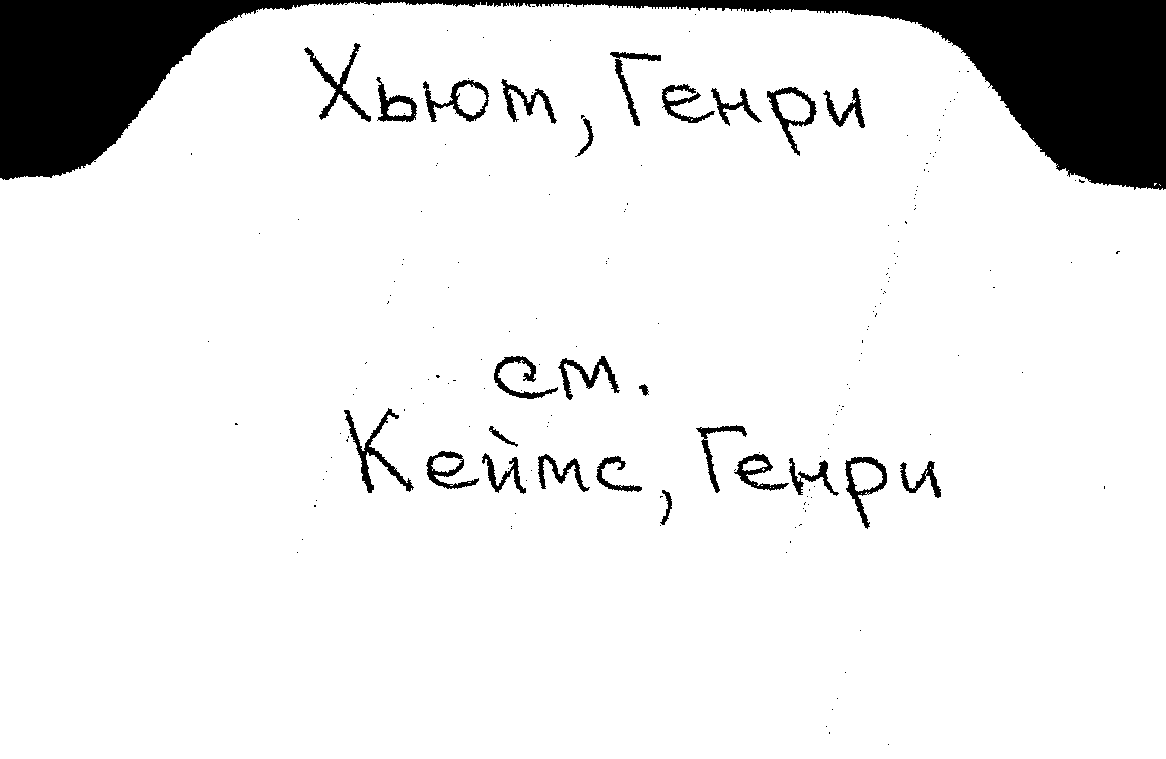 Хьюм, Генри
см.
Кеймс, Генри